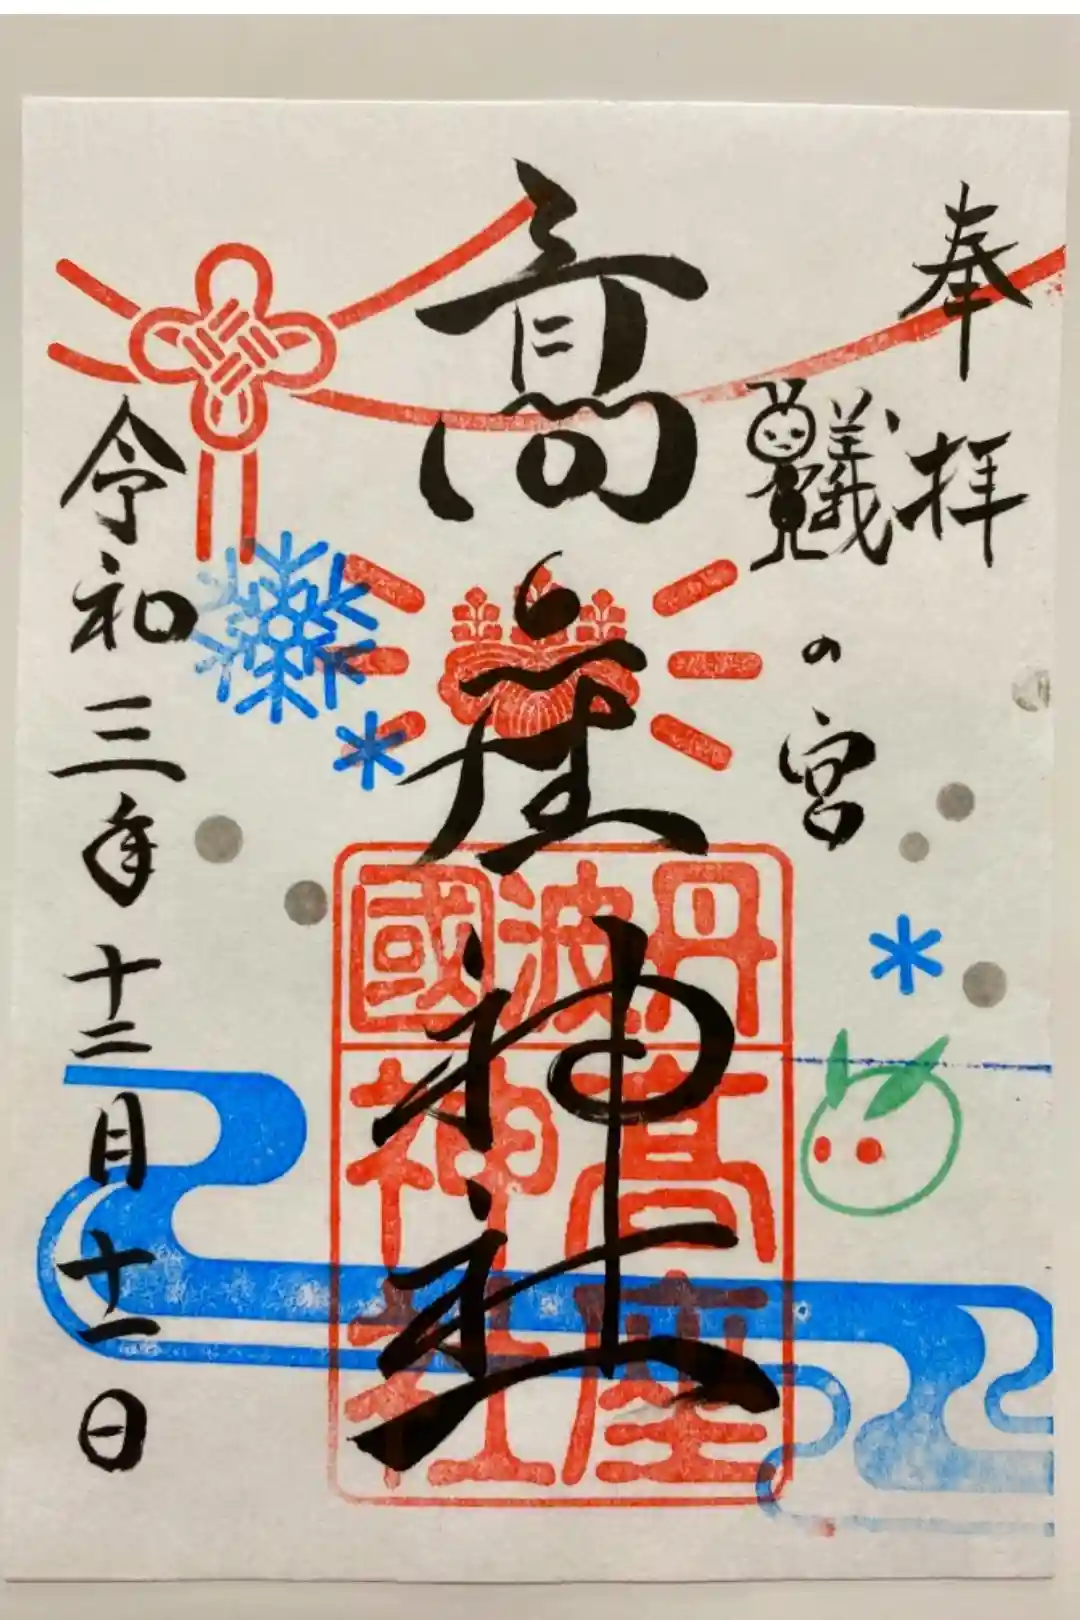 奉拝
蟻の宮
高座神社
丹波國
高座
神社
令和三年十二月十一日